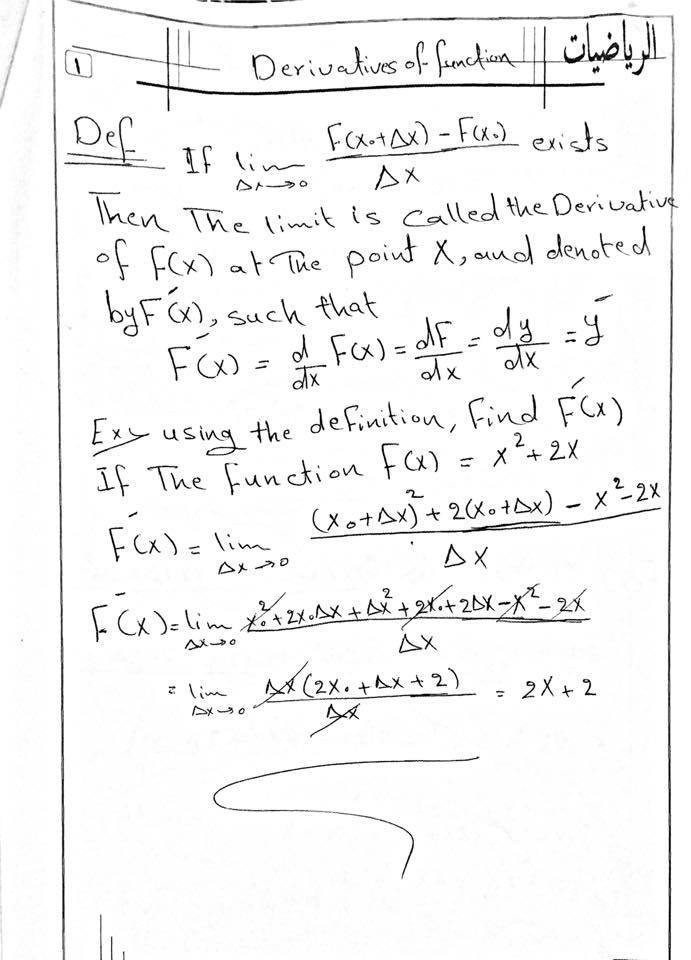 1
Derivatives of function
الرياضيات
Def If lim Δx→0 (F(x₀+Δx) - F(x₀))/Δx exists
Then The limit is called the Derivative
of F(x) at The point X, and denoted
by F́(x), such that
F́(x) = d/dx F(x) = dF/dx = dy/dx = ý
Ex> using the definition, Find F́(x)
If The function F(x) = x² + 2x
F́(x) = lim Δx→0 ((x₀+Δx)² + 2(x₀+Δx) - x² - 2x)/Δx
F́(x) = lim Δx→0 (x₀² + 2x₀Δx + Δx² + 2x₀ + 2Δx - x² - 2x)/Δx
= lim Δx→0 (Δx(2x₀ + Δx + 2))/Δx = 2x + 2